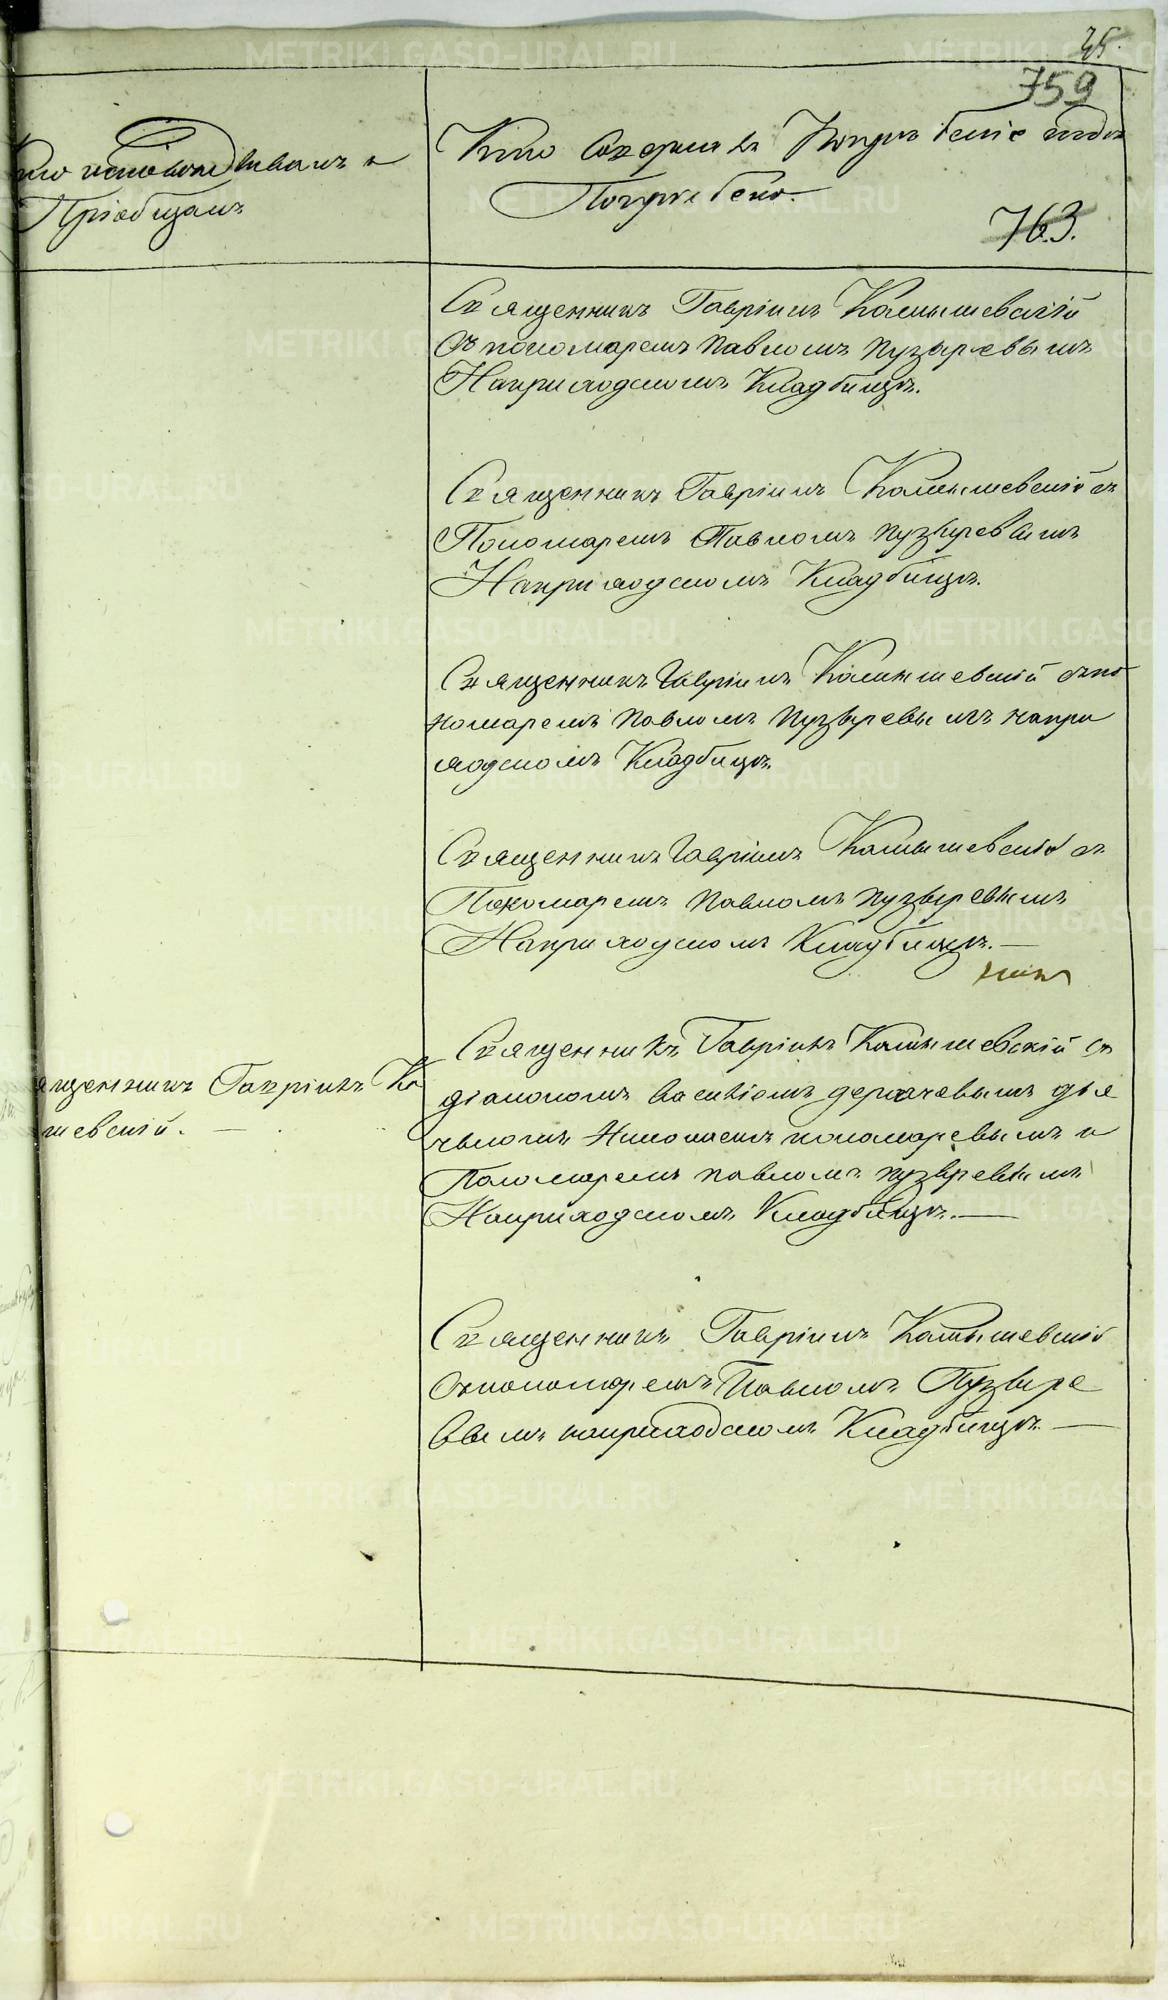 45.
759
Кто исповѣдывалъ и
Пріобщалъ
Кто Совершалъ Погребеніе и гдѣ
Погребено.
763.
Священникъ Гавріилъ Камышевскій
съ пономаремъ Павломъ Пузыревымъ
На приходскомъ Кладбищѣ.
Священникъ Гавріилъ Камышевскій съ
Пономаремъ Павломъ Пузыревымъ
На приходскомъ Кладбищѣ.
Священникъ Гавріилъ Камышевскій съ по
номаремъ Павломъ Пузыревымъ на при
ходскомъ Кладбищѣ.
Священникъ Гавріилъ Камышевскій съ
Пономаремъ Павломъ Пузыревымъ
На приходскомъ Кладбищѣ. —
Священникъ Гавріилъ Камышевскій съ
діакономъ Василіемъ Дерначевымъ дья
чкомъ Николаемъ Пономаревымъ и
Пономаремъ Павломъ Пузыревымъ
На приходскомъ Кладбищѣ. —
ященникъ Гавріилъ Ка
шевскій. —
Священникъ Гавріилъ Камышевскій
съ пономаремъ Павломъ Пузыре
вымъ на приходскомъ Кладбищѣ. —
METRIKI.GASO-URAL.RU